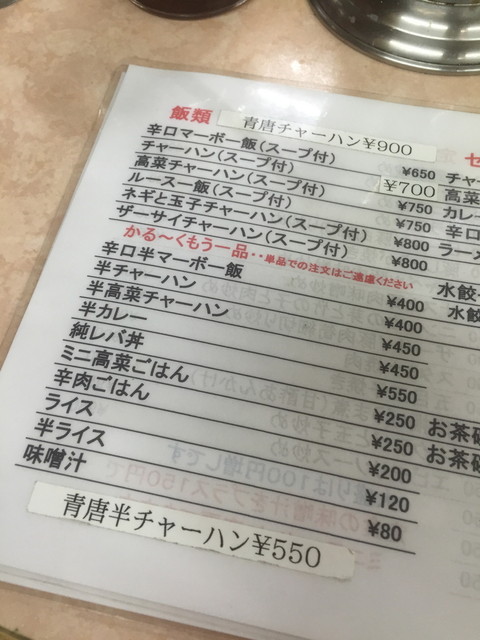 飯類 青唐チャーハン¥900
辛口マーボー飯(スープ付) ¥650
チャーハン(スープ付) ¥700
高菜チャーハン(スープ付) ¥750
ルースー飯(スープ付) ¥750
ネギと玉子チャーハン(スープ付) ¥800
ザーサイチャーハン(スープ付) ¥800
かる〜くもう一品‥単品での注文はご遠慮ください
辛口半マーボー飯 ¥400
半チャーハン ¥400
半高菜チャーハン ¥450
半カレー ¥450
純レバ丼 ¥550
ミニ高菜ごはん ¥250
辛肉ごはん ¥250
ライス ¥200
半ライス ¥120
味噌汁 ¥80
青唐半チャーハン¥550
セ
チャー
高菜
カレー
辛口
ラーメ
水餃
水餃
お茶碗
お茶碗